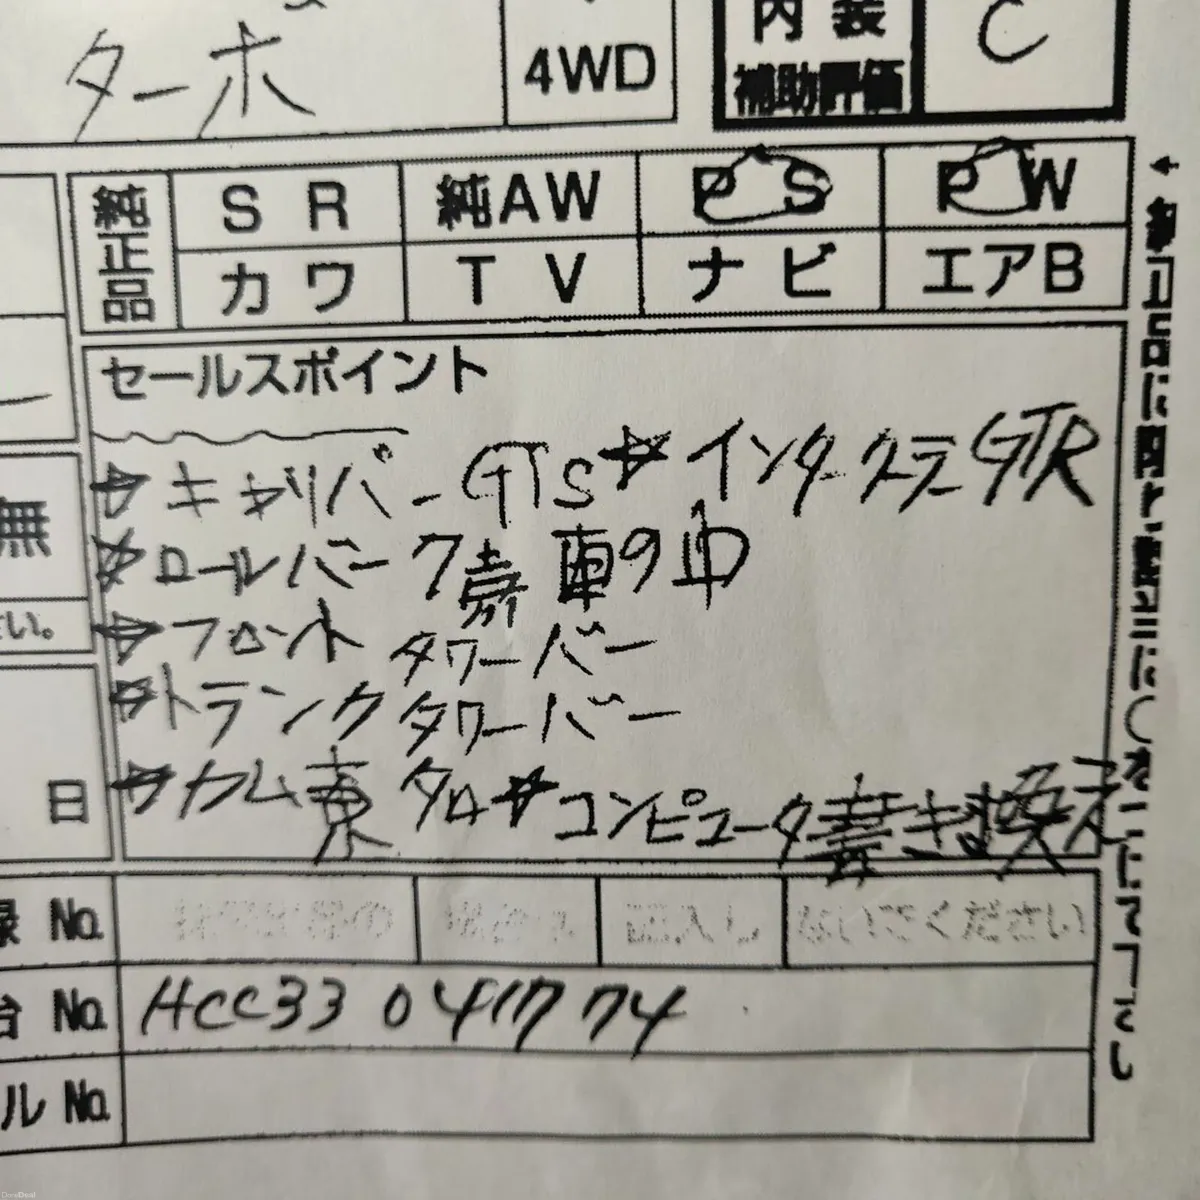 ターボ
4WD
内装
補助評価
C
純正品
SR
純AW
PS
PW
カワ
TV
ナビ
エアB
セールスポイント
☆キャリパーGTS☆インタークーラーGTR
☆ロールバー7
☆フロントタワーバー
☆トランクタワーバー
☆カム東 ☆コンピュータ書き換え
無
さい。
日
録 No.
記入し
ないでください
台 No.
HCC33 041774
ル No.